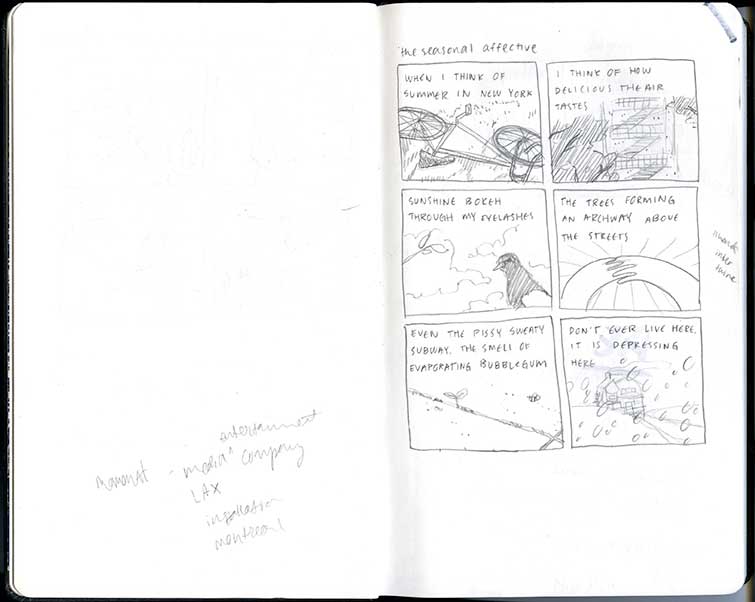 entertainment
- media" company
LAX
montreal
the seasonal affective
WHEN I THINK OF
SUMMER IN NEW YORK
I THINK OF HOW
DELICIOUS THE AIR
TASTES
SUNSHINE BOKEH
THROUGH MY EYELASHES
THE TREES FORMING
AN ARCHWAY ABOVE
THE STREETS
hands
inter
twine
EVEN THE PISSY SWEATY
SUBWAY. THE SMELL OF
EVAPORATING BUBBLEGUM
DON'T EVER LIVE HERE.
IT IS DEPRESSING
HERE